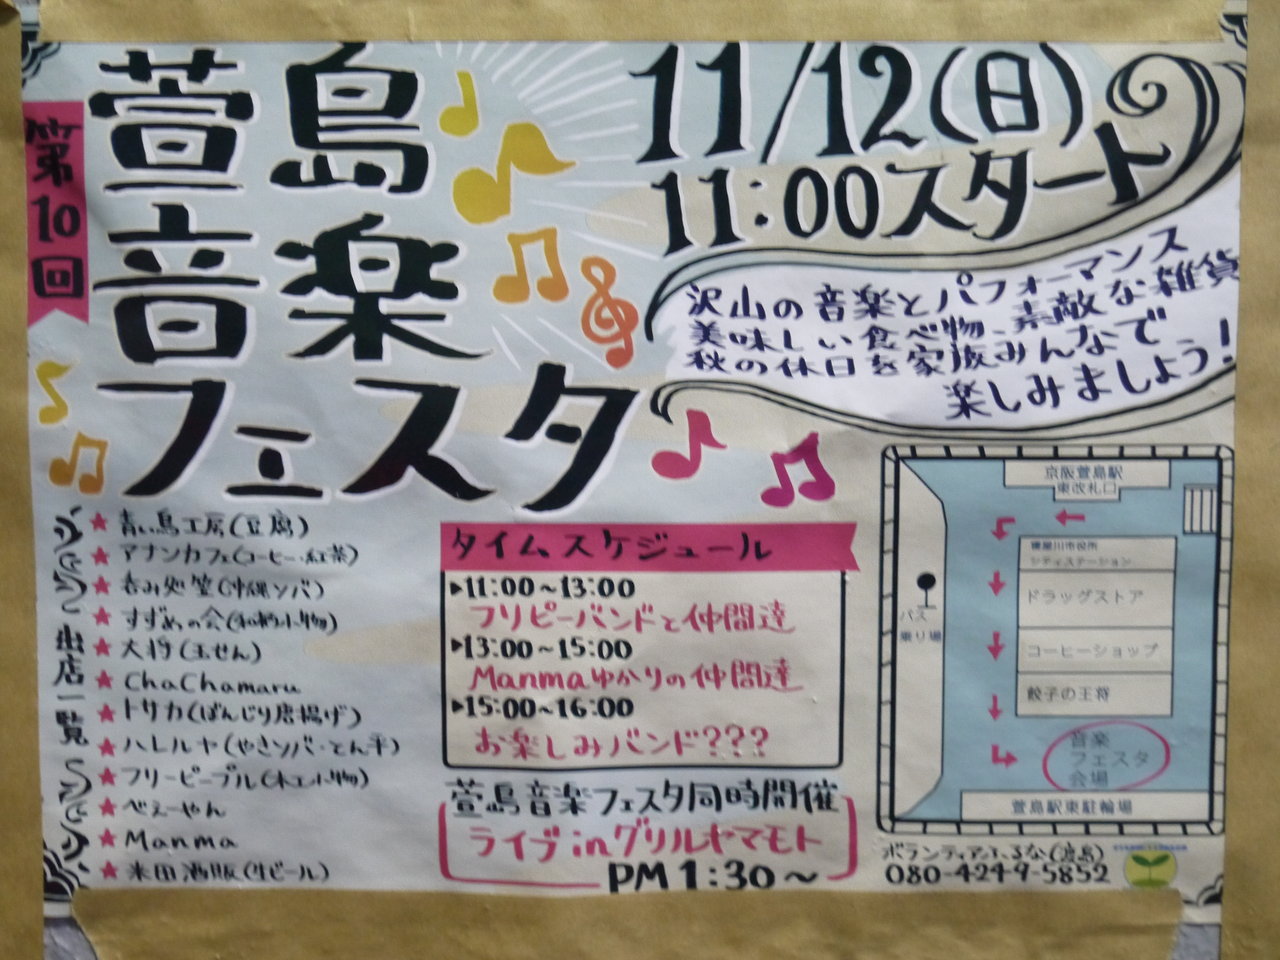 第10回
萱島
音楽
フェスタ
11/12(日)
11:00スタート
沢山の音楽とパフォーマンス
美味しい食べ物、素敵な雑貨
秋の休日を家族みんなで
楽しみましょう!
出店一覧
★青い鳥工房(豆腐)
★アナンカフェ(コーヒー・紅茶)
★呑み処 笠(沖縄ソバ)
★すずめの会(和柄小物)
★大将(玉せん)
★ChaChamaru
★トサカ(ばんじり唐揚げ)
★ハレルヤ(やきソバ・とん平)
★フリーピープル(木工小物)
★べぇーやん
★Manma
★米田酒販(生ビール)
タイムスケジュール
▶11:00~13:00
フリピーバンドと仲間達
▶13:00~15:00
Manmaゆかりの仲間達
▶15:00~16:00
お楽しみバンド???
萱島音楽フェスタ同時開催
ライブinグリルヤマモト
PM 1:30~
京阪萱島駅
東改札口
寝屋川市役所
シティステーション
ドラッグストア
コーヒーショップ
餃子の王将
バス
乗り場
音楽
フェスタ
会場
萱島駅東駐輪場
ボランティアふるな(渡島)
080-4249-5852